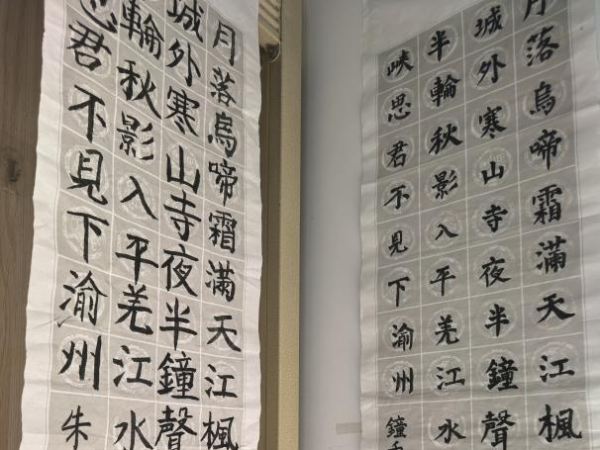 月落烏啼霜滿天江楓
城外寒山寺夜半鐘聲
輪秋影入平羌江水
思君不見下渝州朱
月落烏啼霜滿天江楓
城外寒山寺夜半鐘聲
半輪秋影入平羌江水
峽思君不見下渝州鐘